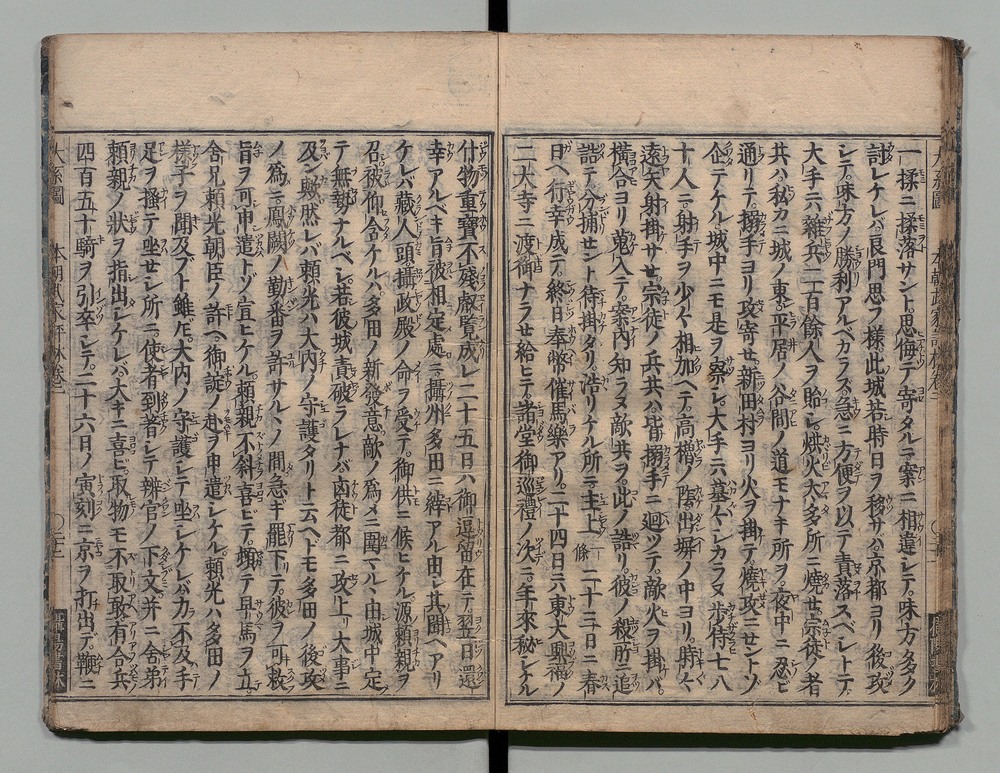 一揉ニ揉落サント。思侮テ寄タルニ案ニ相違シテ。味方多ク
討レケレバ。長門思フ様此城若時日ヲ移サバ京都ヨリ後攻
シテ。味方ノ勝利アルベカラズ。急ニ方便ヲ以テ責落スベシトテ。
大手ニハ雑兵二百餘人ヲ貽シ。烘火大多所ニ燒せ宗徒ノ者
共ハ私カニ城ノ東。平居ノ谷間ノ道モナキ所ヲ。夜中ニ忍ビ
通リテ。搦手ヨリ攻寄せ。新田村ヨリ火ヲ掛テ。燒攻ニせントゾ
企テケル城中ニモ是ヲ察シ。大手ニハ墓〻シカラヌ歩侍七八
十人ニ。射手ヲ少〻相加ヘテ。高櫓ノ陰出塀ノ中ヨリ。時々
遠矢射掛サせ。宗徒ノ兵共ハ。皆搦手ニ廻ツテ。敵火ヲ掛バ。
横合ヨリ蒐入テ。案内知ラヌ敵共ヲ。此ノ詰リ。彼ノ殺所ニ追
詰テ。分捕せント待掛タリ。浩リケル所ニ主上一條二十三日ニ春
日ヘ行幸成テ。終日奉幣催馬樂アリ。二十四日ニハ東大興福ノ
二大寺ニ渡御ナラせ給ヒテ。諸堂御巡禮ノ次ニ。手來秘シケル
什物重寶不殘叡覧成レ二十五日ハ御逗留在テ。翌日還
幸アルベキ旨被相定處ニ。攝州多田ニ緯アル由シ其聞ヘアリ
ケレバ藏人頭攝政殿ノ命ヲ受テ。御供ニ候ヒケル源頼親ヲ
召被仰合ケルハ。多田ノ新發意。敵ノ爲メニ圍マルヽ由城中定
テ無勢ナルベシ。若彼城責破ラレナバ凶徒都ニ攻上リ大事ニ
及ン歟。然レバ頼光ハ大内ノ守護タリト云ヘトモ多田ノ後攻
ノ爲ニ鳳闕ノ勤番ヲ許サルヽノ間急ギ罷下テ。彼ヲ可救
旨ヲ可申遣トゾ宣ヒケル。頼親不斜喜ビテ。頓テ早馬ヲ立
舎兄頼光朝臣ノ許ヘ。御諚ノ赴ヲ申遣シケル。頼光ハ多田ノ
様子ヲ聞及ブト雖モ。大内ノ守護シテ坐シケレバ力不及手
足ヲ搔テ坐せシ所ニ。使者到着シテ辨官ノ下文并ニ舎弟
頼親ノ状ヲ指出シケレバ。大キニ喜ビ。取物モ不取敢。有合兵
四百五十騎ヲ引卒シテ。二十六日ノ寅刻ニ京ヲ打出デ。鞭ニ